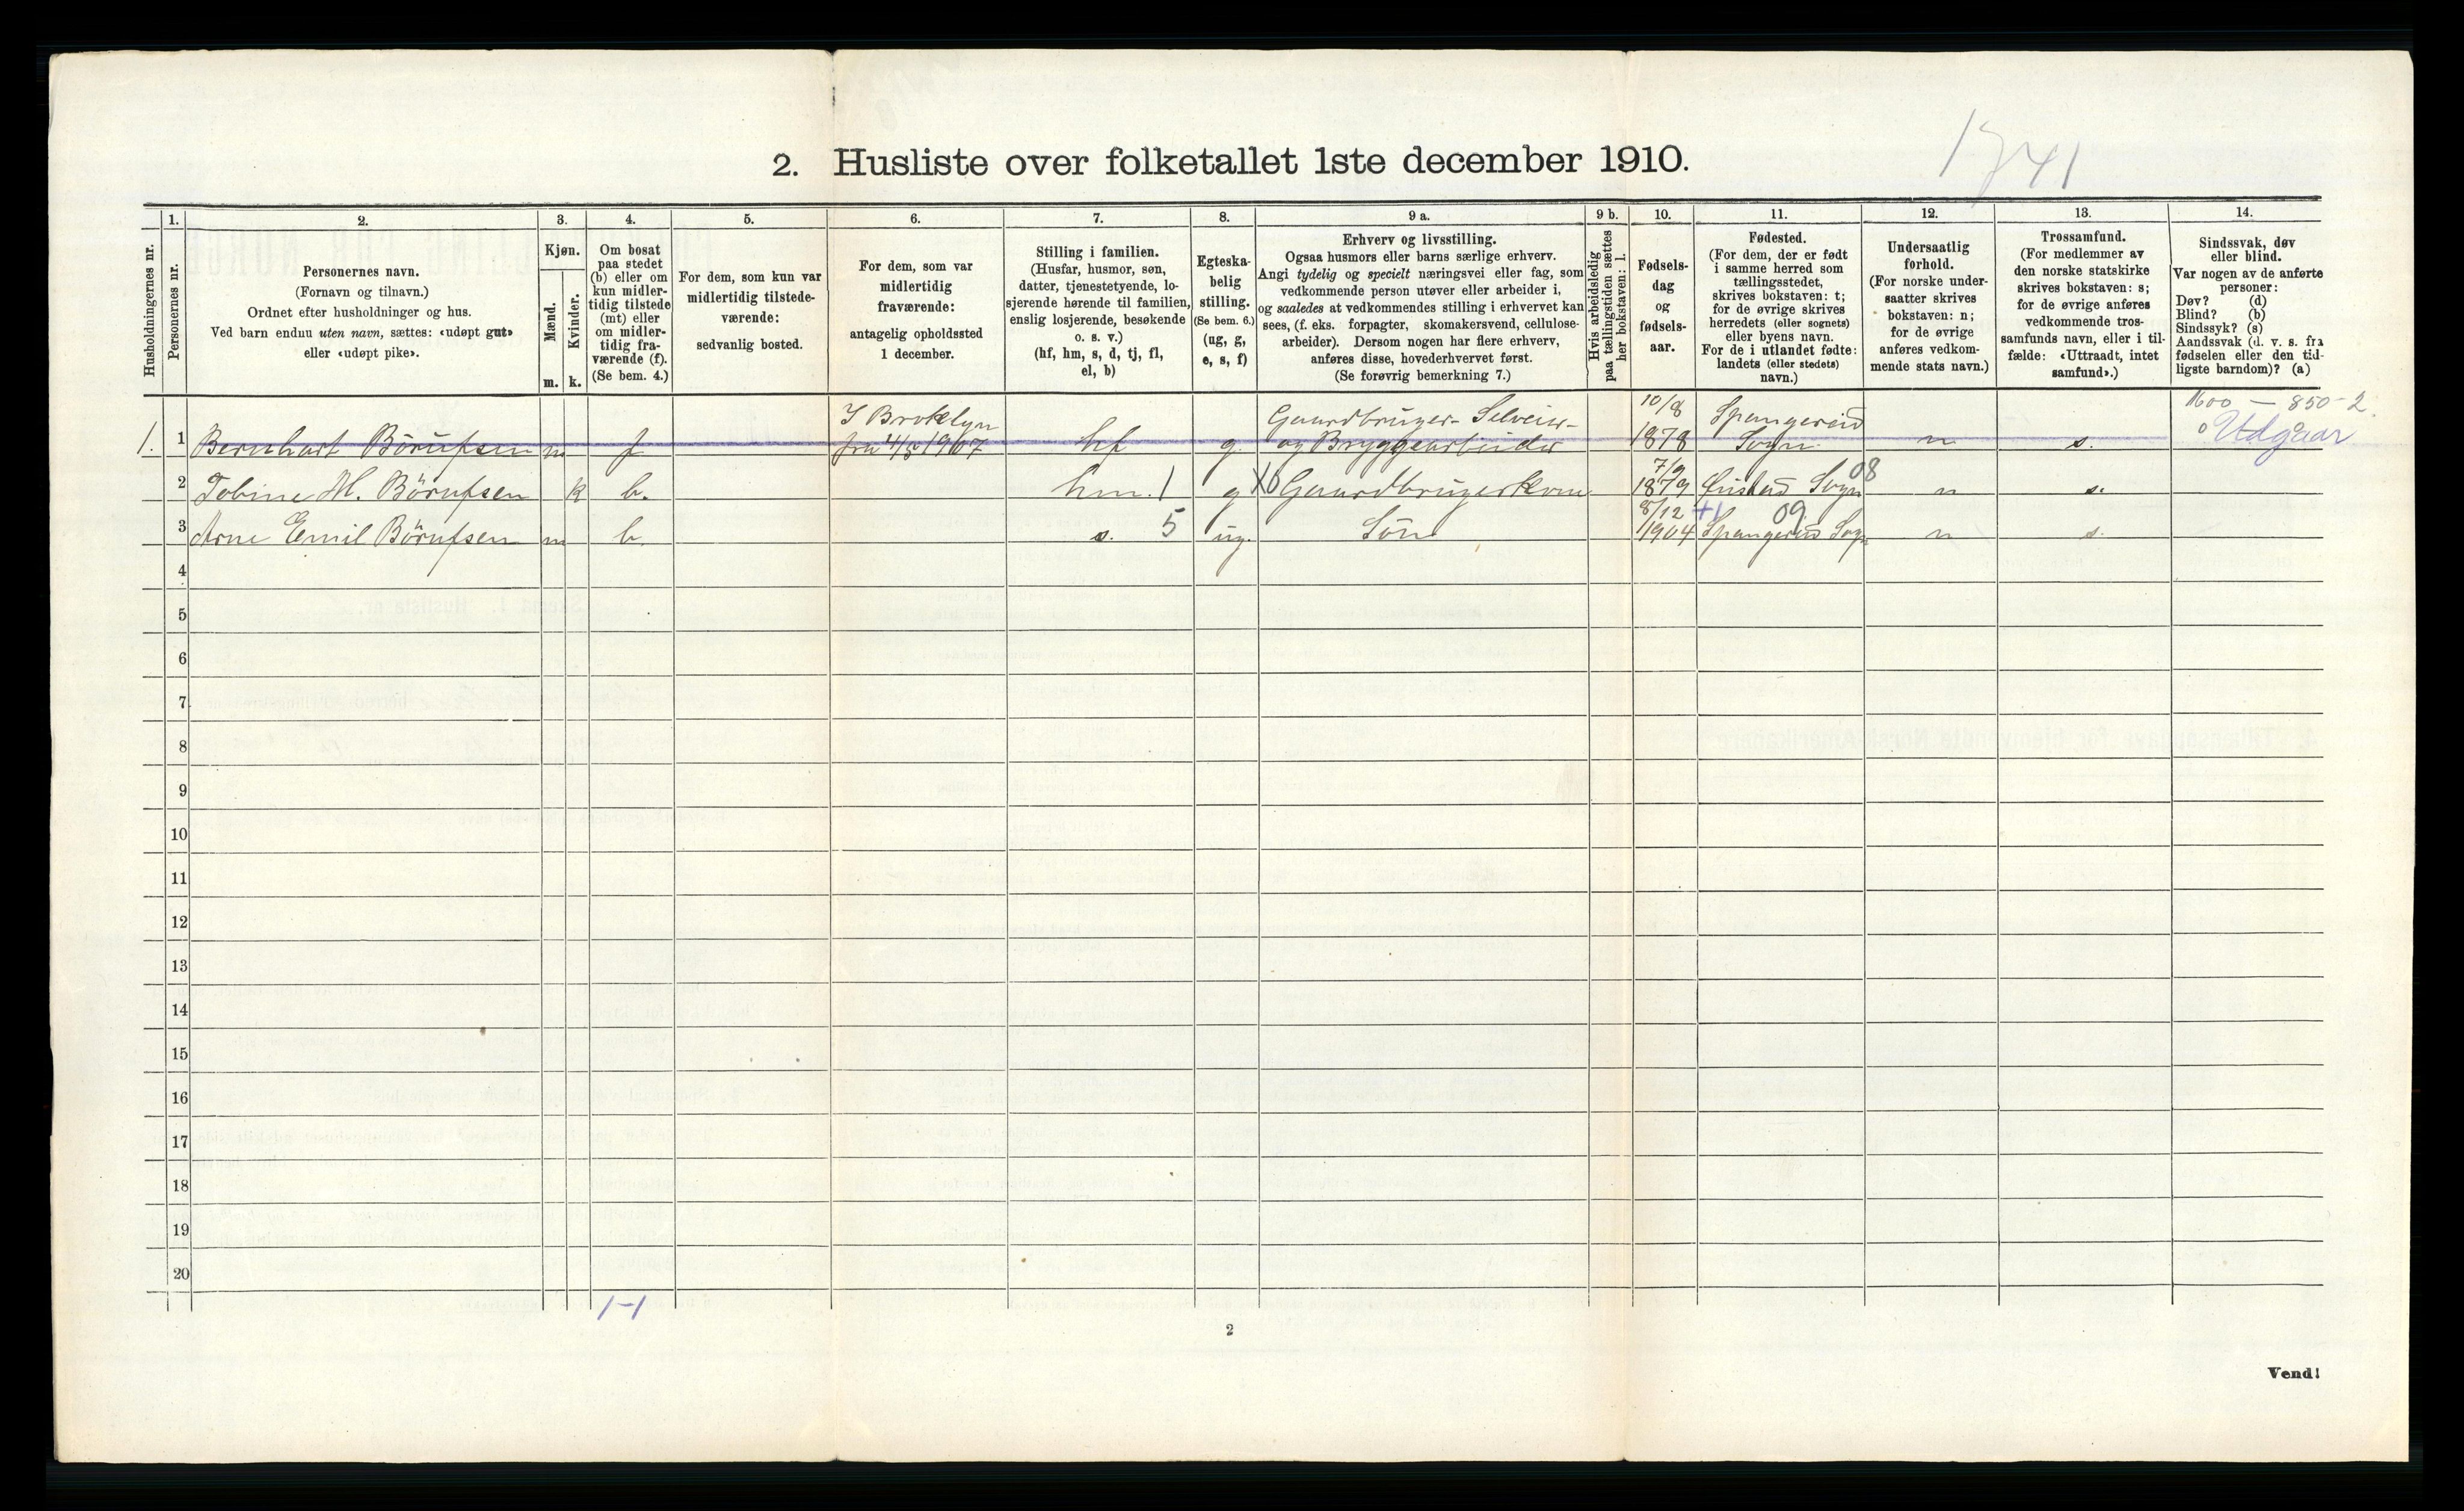 1741
2. Husliste over folketallet 1ste december 1910.
Husholdningernes nr.
1.
Personernes nr.
2.
Personernes navn.
(Fornavn og tilnavn.)
Ordnet efter husholdninger og hus.
Ved barn endnu uten navn, sættes: «udøpt gut»
eller «udøpt pike».
3.
Kjøn.
Mænd.
Kvinder.
m. k.
4.
Om bosat
paa stedet
(b) eller om
kun midler-
tidig tilstede
(mt) eller
om midler-
tidig fra-
værende (f).
(Se bem. 4.)
5.
For dem, som kun var
midlertidig tilstede-
værende:
sedvanlig bosted.
6.
For dem, som var
midlertidig
fraværende:
antagelig opholdssted
1 december.
7.
Stilling i familien.
(Husfar, husmor, søn,
datter, tjenestetyende, lo-
sjerende hørende til familien,
enslig losjerende, besøkende
o. s. v.)
(hf, hm, s, d, tj, fl,
el, b)
8.
Egteska-
belig
stilling.
(Se bem. 6.)
(ug, g,
e, s, f)
9 a.
Erhverv og livsstilling.
Ogsaa husmors eller barns særlige erhverv.
Angi tydelig og specielt næringsvei eller fag, som
vedkommende person utøver eller arbeider i,
og saaledes at vedkommendes stilling i erhvervet kan
sees, (f. eks. forpagter, skomakersvend, cellulose-
arbeider). Dersom nogen har flere erhverv,
anføres disse, hovederhvervet først.
(Se forøvrig bemerkning 7.)
9 b.
Hvis arbeidsledig
paa tællingstiden sættes
her bokstaven: l.
10.
Fødsels-
dag
og
fødsels-
aar.
11.
Fødested.
(For dem, der er født
i samme herred som
tællingsstedet,
skrives bokstaven: t;
for de øvrige skrives
herredets (eller sognets)
eller byens navn.
For de i utlandet fødte:
landets (eller stedets)
navn.)
12.
Undersaatlig
forhold.
(For norske under-
saatter skrives
bokstaven: n;
for de øvrige
anføres vedkom-
mende stats navn.)
13.
Trossamfund.
(For medlemmer av
den norske statskirke
skrives bokstaven: s;
for de øvrige anføres
vedkommende tros-
samfunds navn, eller i til-
fælde: «Uttraadt, intet
samfund».)
14.
Sindssvak, døv
eller blind.
Var nogen av de anførte
personer:
Døv? (d)
Blind? (b)
Sindssyk? (s)
Aandssvak (d. v. s. fra
fødselen eller den tid-
ligste barndom)? (a)
I Broklyn Gaardbruger- Selveier- 10/8 Spangereid 1600 - 850-2.
1. 1 Bernhart Börufsen m f fra 4/5 1907 hf g. og Bryggearbeider 1878 Sogn n s. Udgaar
7/9 08
2 Tobine M. Börufsen k b. hm. 1 g Gaardbrugerkone 1879 Øislad Sogn n s.
8/12 +1 09
3 Arne Emil Börufsen m b. s. 5 ug. Sön 1904 Spangereid Sogn n s.
4
5
6
7
8
9
10
11
12
13
14
15
16
17
18
19
20
1-1
2
Vend!